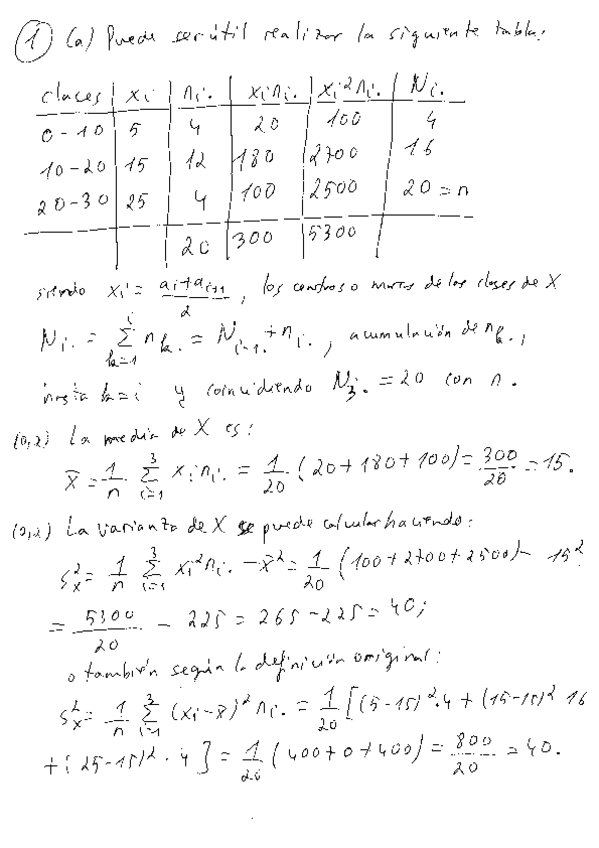 1 (a) Puede ser útil realizar la siguiente tabla:
clases | xi | ni. | xini. | xi²ni. | Ni.
0-10 | 5 | 4 | 20 | 100 | 4
10-20 | 15 | 12 | 180 | 2700 | 16
20-30 | 25 | 4 | 100 | 2500 | 20 = n
20 | 300 | 5300
siendo xi = (ai+ai+1)/2, los centros o marcas de las clases de X
Ni. = Σ_{k=1}^{i} nk. = Ni-1. + ni., acumulación de nk.,
hasta k=i y coincidiendo N3. = 20 con n.
(0,2) La media de X es:
x̄ = 1/n Σ_{i=1}^{3} xini. = 1/20 (20+180+100) = 300/20 = 15.
(0,2) La varianza de X se puede calcular haciendo:
s²x = 1/n Σ_{i=1}^{3} xi²ni. - x̄² = 1/20 (100+2700+2500) - 15²
= 5300/20 - 225 = 265-225 = 40;
o también según la definición original:
s²x = 1/n Σ_{i=1}^{3} (xi-x̄)² ni. = 1/20 [(5-15)²·4 + (15-15)² 16
+(25-15)²·4] = 1/20 (400+0+400) = 800/20 = 40.